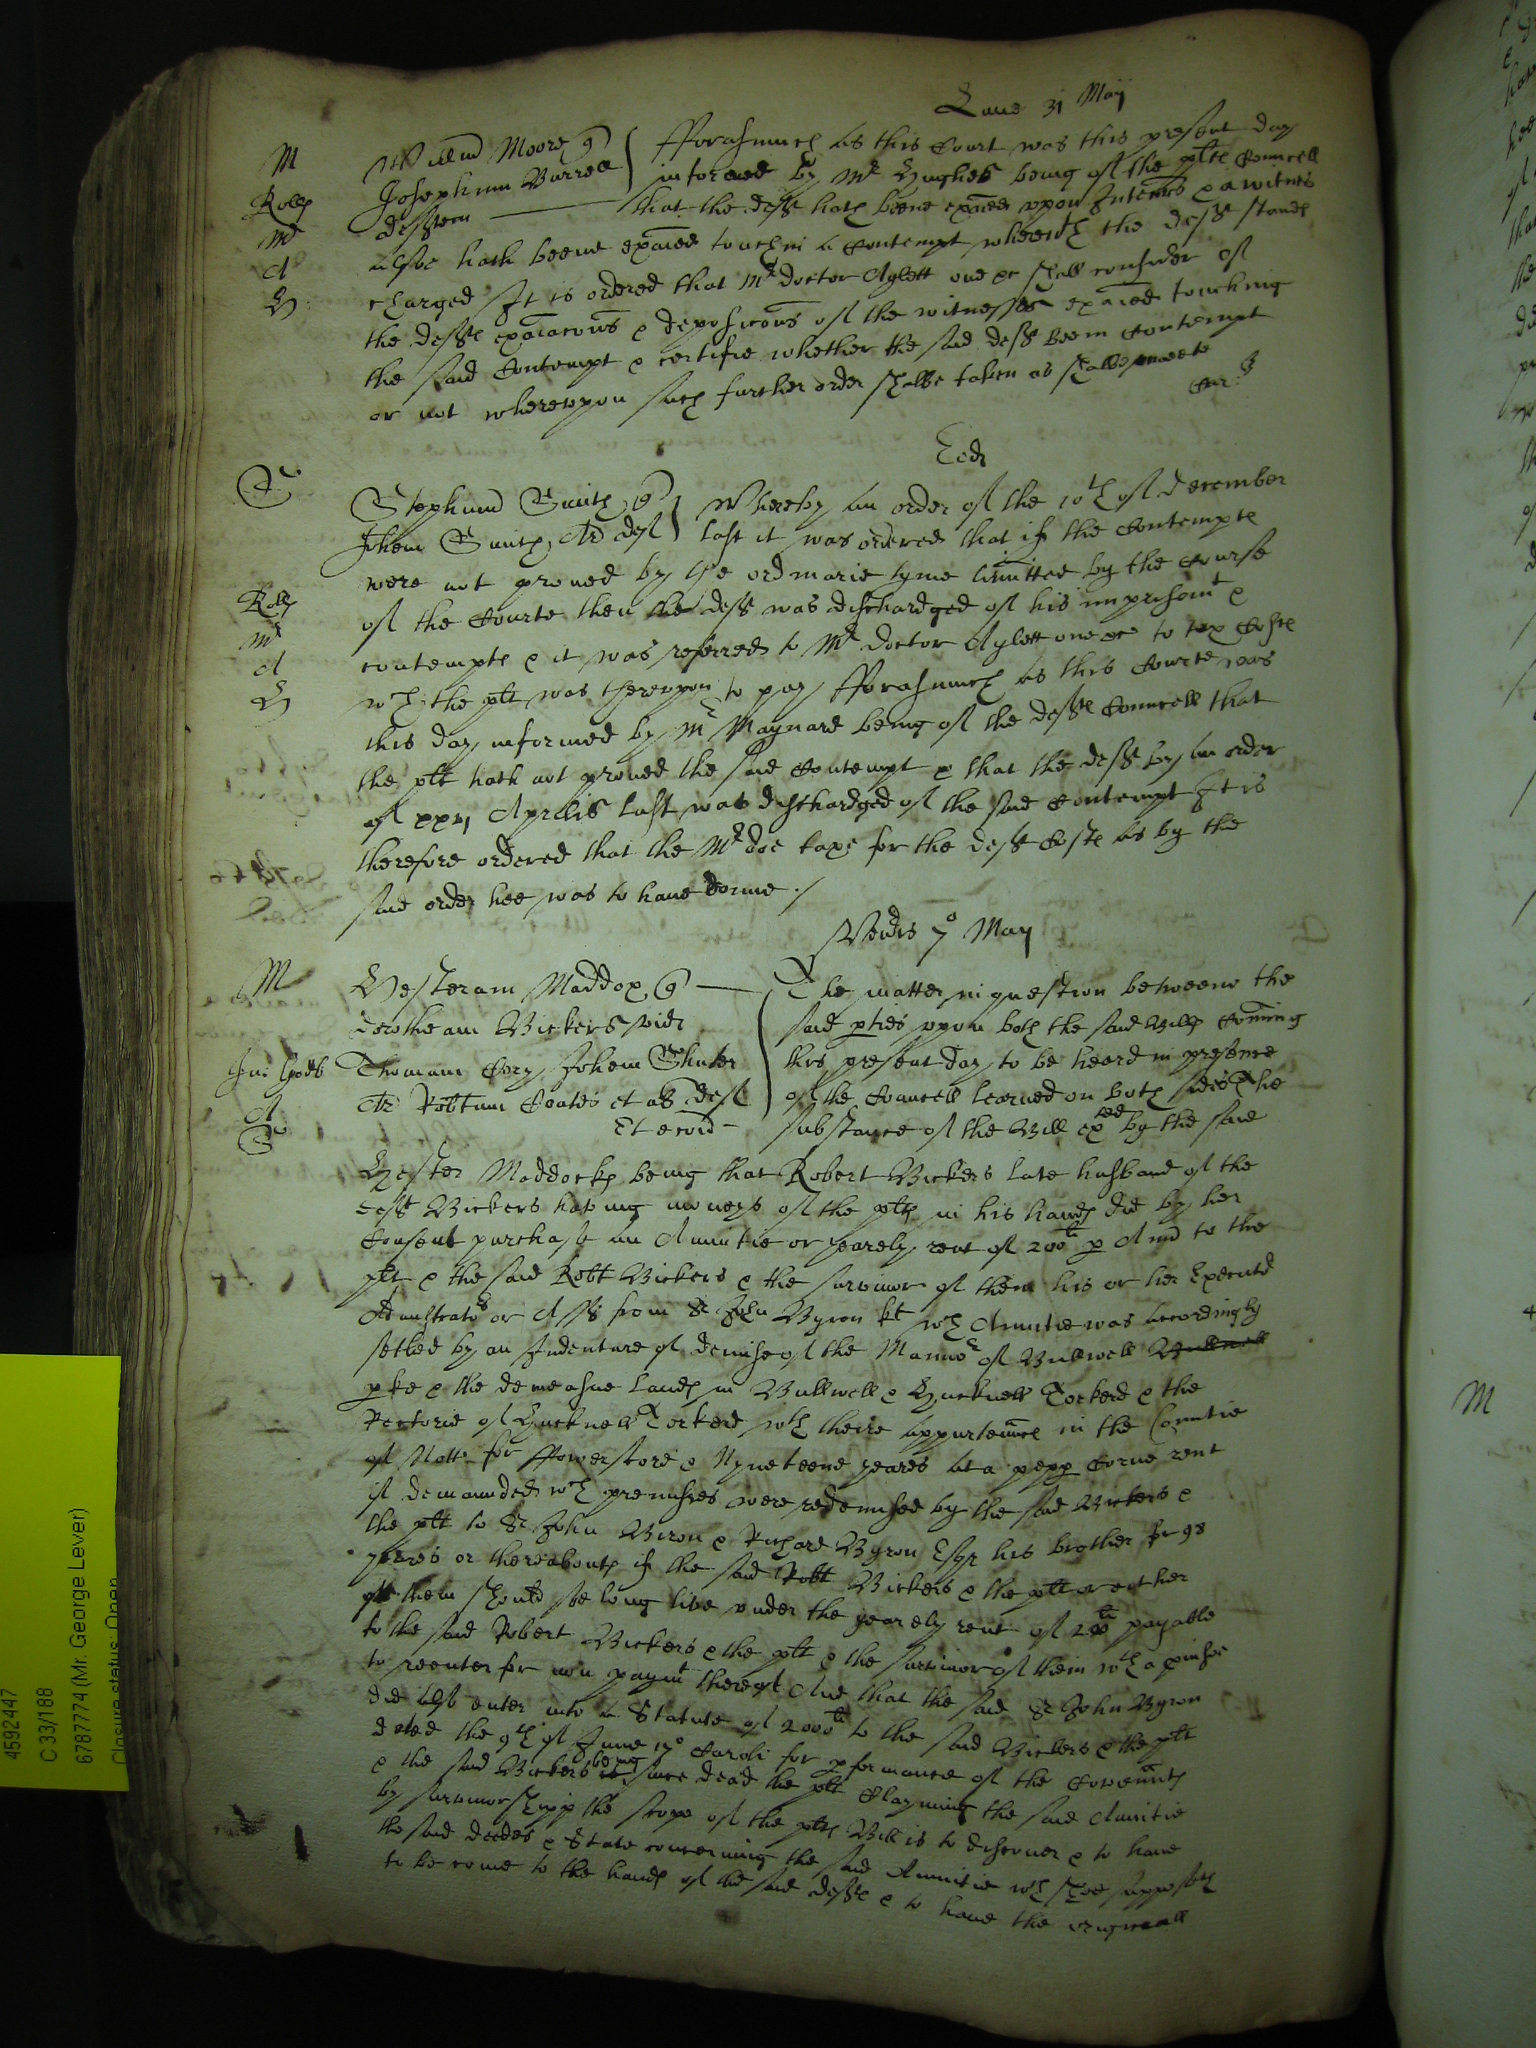 Lune 31 Maij
M Willm Moore q
Josephum Burrell
defftem
fforasmuch as this Court was this present day
informed by Mr Hughes being of the plts Councell
that the defft hath beene exaied vpon Interries & a witnes
Rolls
Mr
A
H
alsoe hath beene exaied touching a Contempt wherewth the defft stands
charged It is ordered that Mr doctor Aylett one &c shall consider of
the deffts exaiacons & deposicons of the witnesses exaied touching
the said Contempt & certifie whether the said defft bee in Contempt
or not wherevpon such further order shalbe taken as shalbe meete
Cur
Eod
S
Stephanu Smith q
Johem Smith Ar def
Whereby an order of the 10th of December
last it was ordered that if the Contempts
were not proued by the ordinarie tyme limitted by the Course
Rolls
Mr
A
H
of the Courte then the defft was dischardged of his imprisoint &
contempts & it was referred to Mr doctor Aylett one &c to tax Costs
wch the plt was therevpon to pay fforasmuch as this Courte was
this day informed by Mr Maynard being of the deffts Councell that
the plt hath not proued the said Contempt & that the defft by an order
of xxvj Aprilis last was dischardged of the said Contempt It is
therefore ordered that the Mr doe taxe for the defft Costs as by the
said order hee was to haue donne ./
Ven̄is 7o Maij
M
Hesteram Maddox q
dorotheam Bickers vid
Thomam Cory Johem Shuter
Ar Robtum Coates et al def
Et econ
The matter in question betweene the
said pties vpon both the said Bills Coming
this present day to be heard in presence
of the Councell learned on both sides The
substance of the Bill exed by the said
A
S
Hester Maddocks being that Robert Bickers late husband of the
deft Bickers having moneys of the plts in his hands did by her
Consent purchase an Anuitie or yearely rent of 200li p Ann to the
plt & the said Robt Bickers & the survivor of them his or her Executrs
Administratrs or Assis from Sr John Byron kt wch Anuitie was accordingly
setled by an Indenture of demise of the Mannor of Bullwell Bullwell
pke & the demeasne lands in Bullwell & Hucknell Torkerd & the
Rectorie of Hucknell Torkerd wth theire appurteunces in the Countie
of Nott for ffowerscore & Nyneteene yeares at a pepp Corne rent
if demaunded wch premisses were redemised by the said Bickers &
the plt to Sr John Biron & Richard Byron Esqr his brother for 98
yeares or thereabouts if the said Robt Bickers & the plt or either
of them should soe long live vnder the yearely rent of 200li payable
to the said Robert Bickers & the plt & the survivor of them wth a pviso
to reenter for non paymt thereof And that the said Sr John Byron
did alsoe enter into a Statute of 2000li to the said Bickers & the plt
dated the 9th of June 17o Caroli for pformance of the Coveunts
& the said Bickers being since dead the plt Clayming the said Anuitie
by survivorshipp the scope of the plts Bill is to discover & to haue
the said deedes & State concerning the said Anuitie wch shee supposeth
to be come to the hands of the said deffts & to haue the originall
4592447
C 33/188
6787774 (Mr. George Lever)
Closure status: Open
M